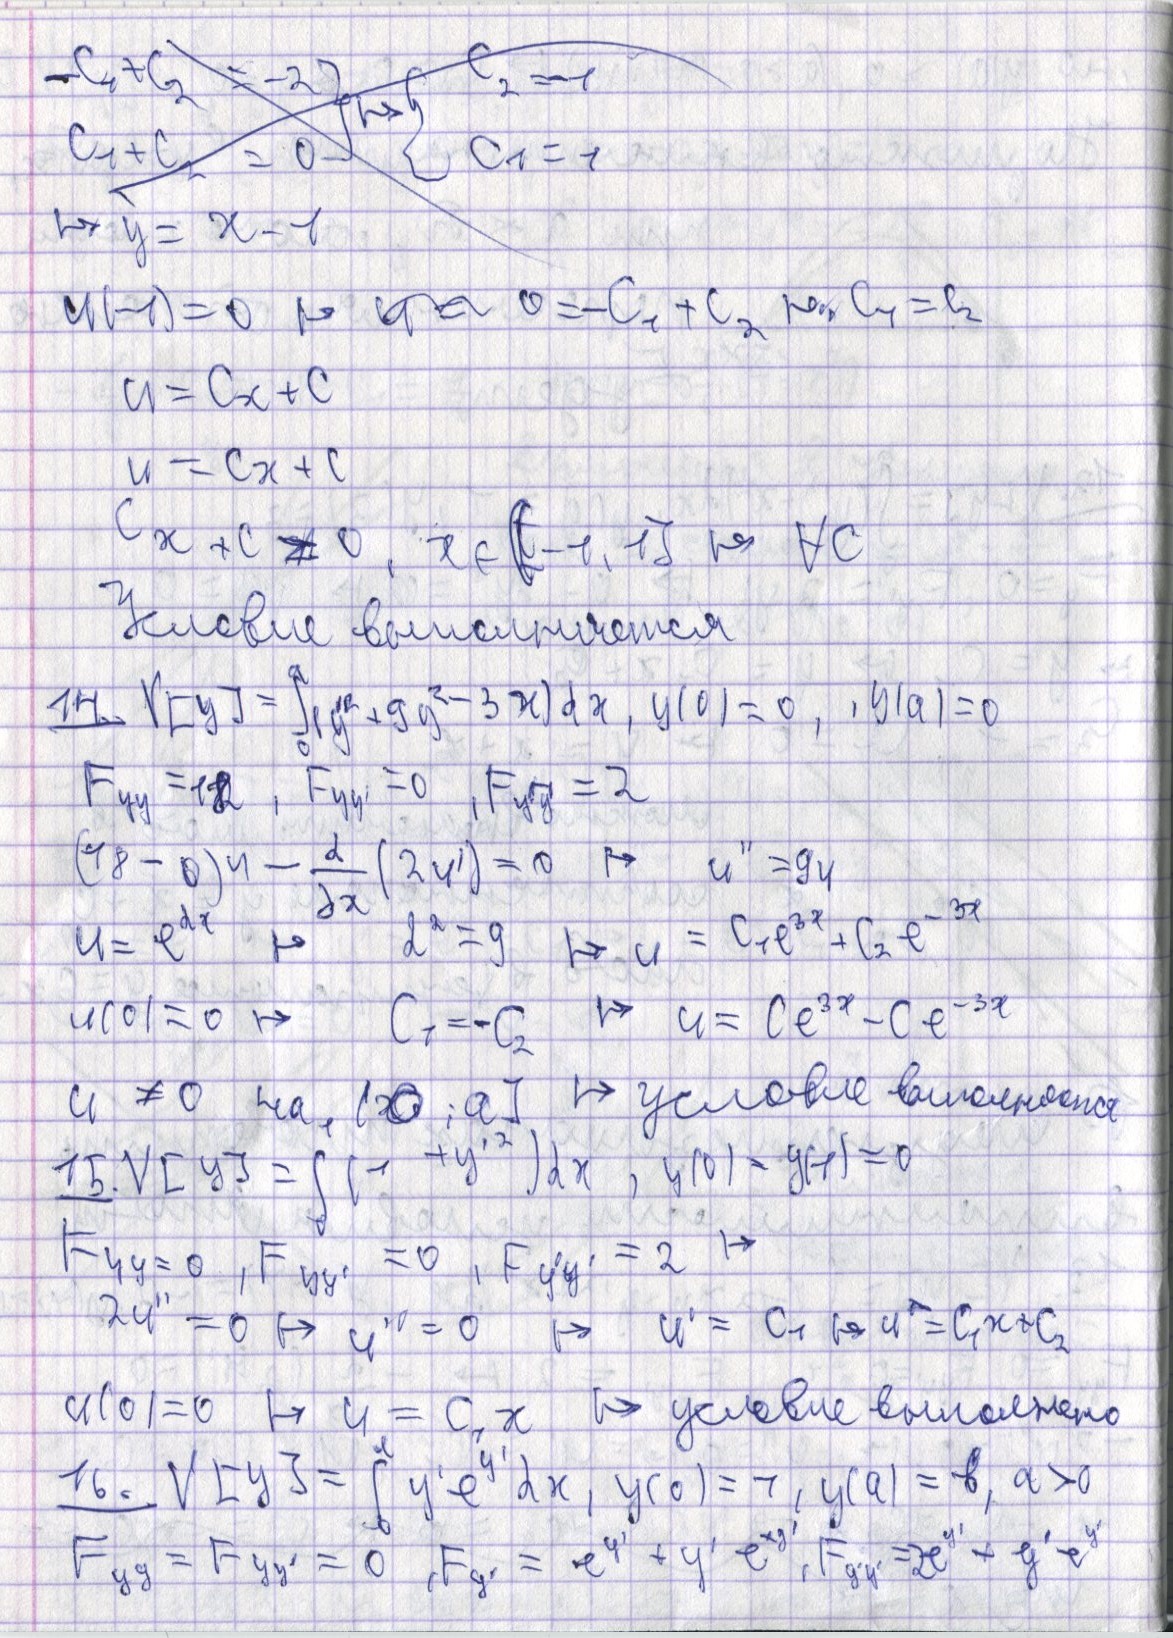 -C₁+C₂ = -2 } ↦ { C₂ = -1
C₁+C₂ = 0 } C₁ = 1
↦ y = x - 1
u(-1) = 0 ↦ 0 = -C₁ + C₂ ↦ C₁ = C₂
u = Cx + C
u = Cx + C
Cx + C ≠ 0, x ∈ (-1, 1] ↦ ∀C
Условие выполняется
14. V[y] = ∫₀ᵃ (y'² + 9y² - 3x)dx, y(0) = 0, y(a) = 0
F_yy = 18, F_yy' = 0, F_y'y' = 2
(18 - 0)u - d/dx (2u') = 0 ↦ u'' = 9u
u = e^{αx} ↦ α² = 9 ↦ u = C₁e^{3x} + C₂e^{-3x}
u(0) = 0 ↦ C₁ = -C₂ ↦ u = Ce^{3x} - Ce^{-3x}
u ≠ 0 на (0; a] ↦ условие выполняется
15. V[y] = ∫₀ (1 + y'²)dx, y(0) = y(1) = 0
F_yy = 0, F_yy' = 0, F_y'y' = 2 ↦
2u'' = 0 ↦ u'' = 0 ↦ u' = C₁ ↦ u = C₁x + C₂
u(0) = 0 ↦ u = C₁x ↦ условие выполнено
16. V[y] = ∫₀ y'e^{y'}dx, y(0) = 1, y(a) = b, a > 0
F_yy = F_yy' = 0, F_y' = e^{y'} + y'e^{y'}, F_y'y' = 2e^{y'} + y'e^{y'}